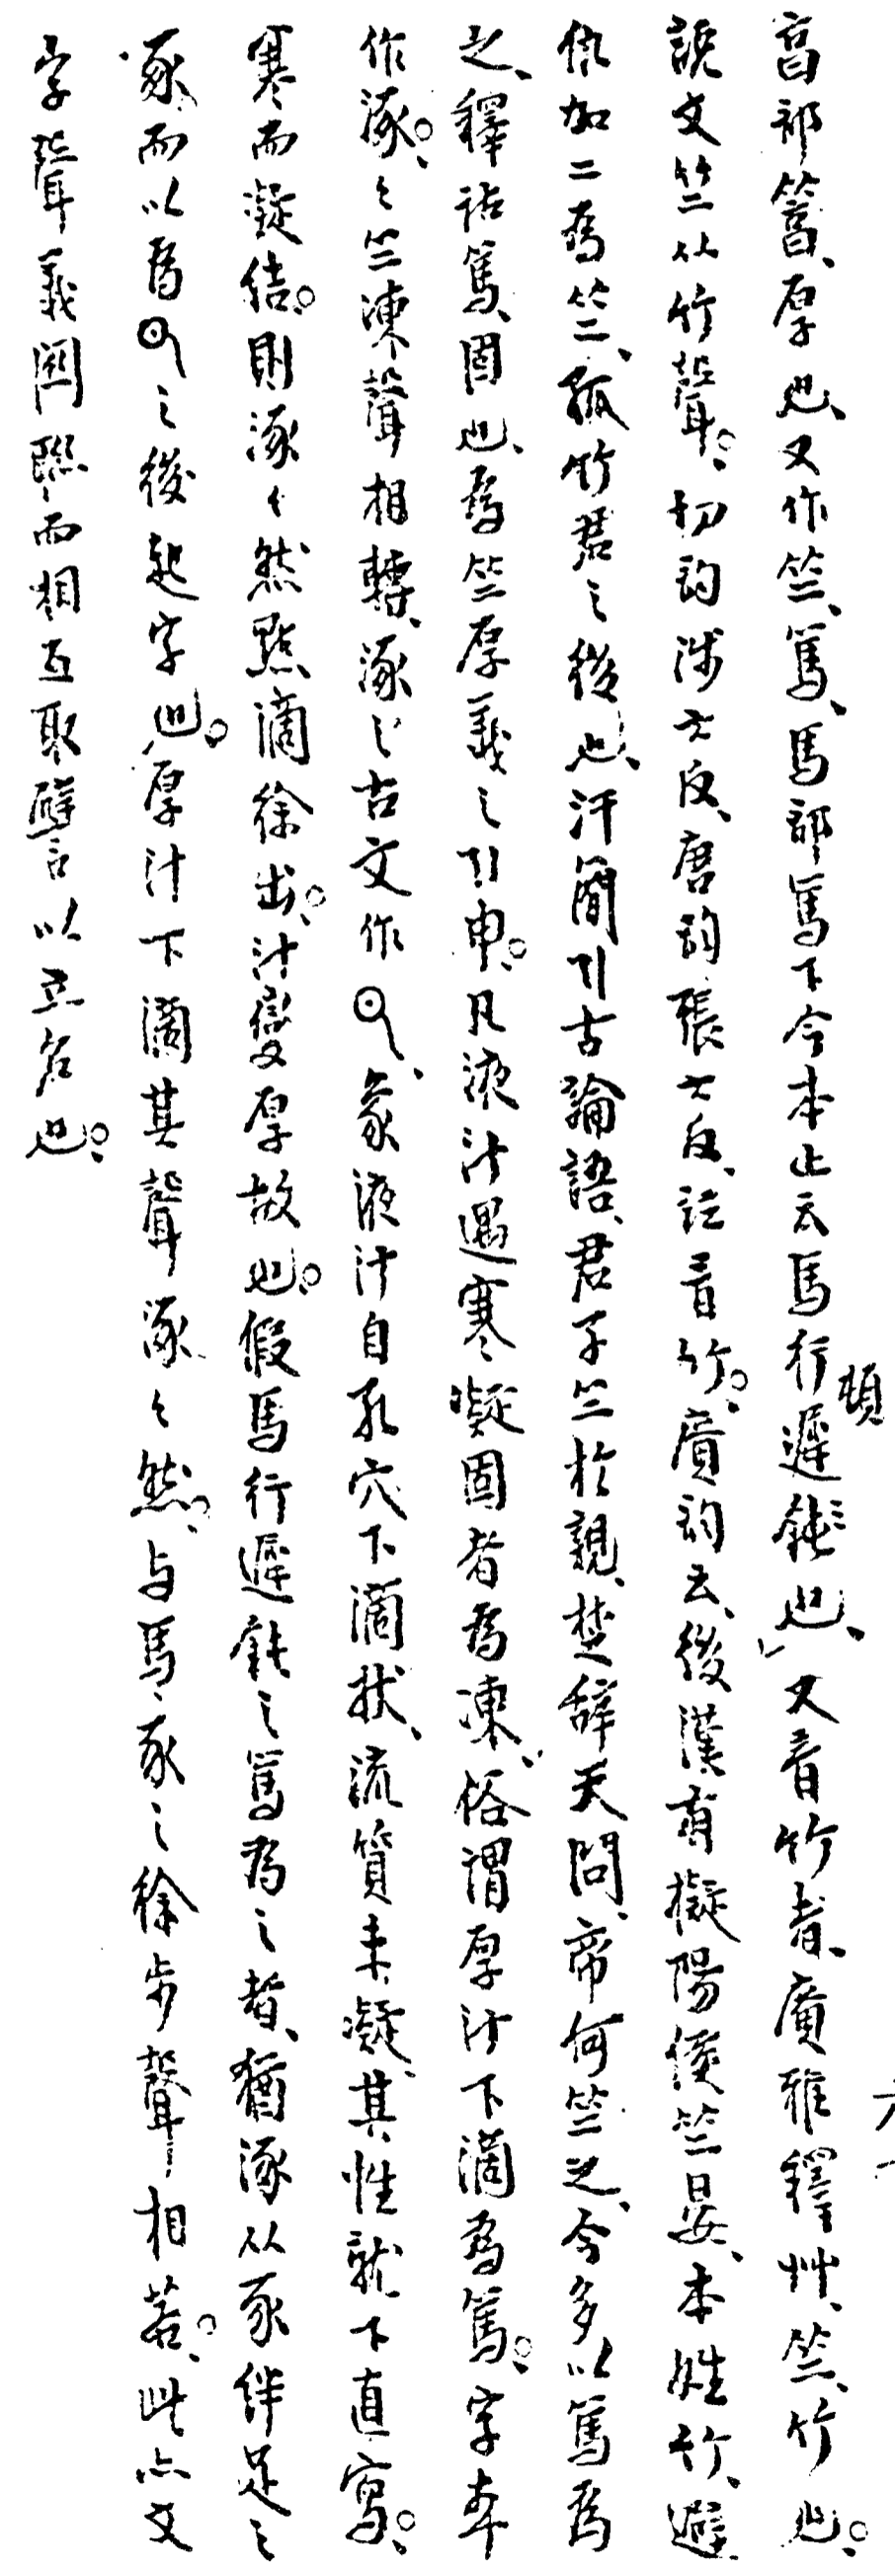 亯部䈞、厚也、又作竺、篤、馬部篤下今本止云馬行遲頓也、又音竹者、廣雅釋艸、竺、竹也。
說文竺从竹聲。切韵陟六反、唐韵張六反、竝音竹。廣韵云、後漢有擬陽侯竺晏、本姓竹、避
仇加二爲竺、孤竹君之後也、汗簡引古論語、君子竺於親、楚辭天問、帝何竺之、今多以篤爲
之、釋詁篤、固也、爲竺厚義之引申。凡液汁遇寒凝固者爲凍、俗謂厚汁下滴爲篤。字本
作涿。涿竺凍聲相轉、涿之古文作、象液汁自孔穴下滴狀、流質未凝、其性就下直寫。
寒而凝结。則涿涿然點滴徐出。汁變厚故也。假馬行遲鈍之篤爲之者、猶涿从豖絆足之
豖而以爲之後起字也。厚汁下滴其聲涿涿然。与馬豖之徐步聲相若。此亦文
字聲義関聯而相互取譬以立名也。